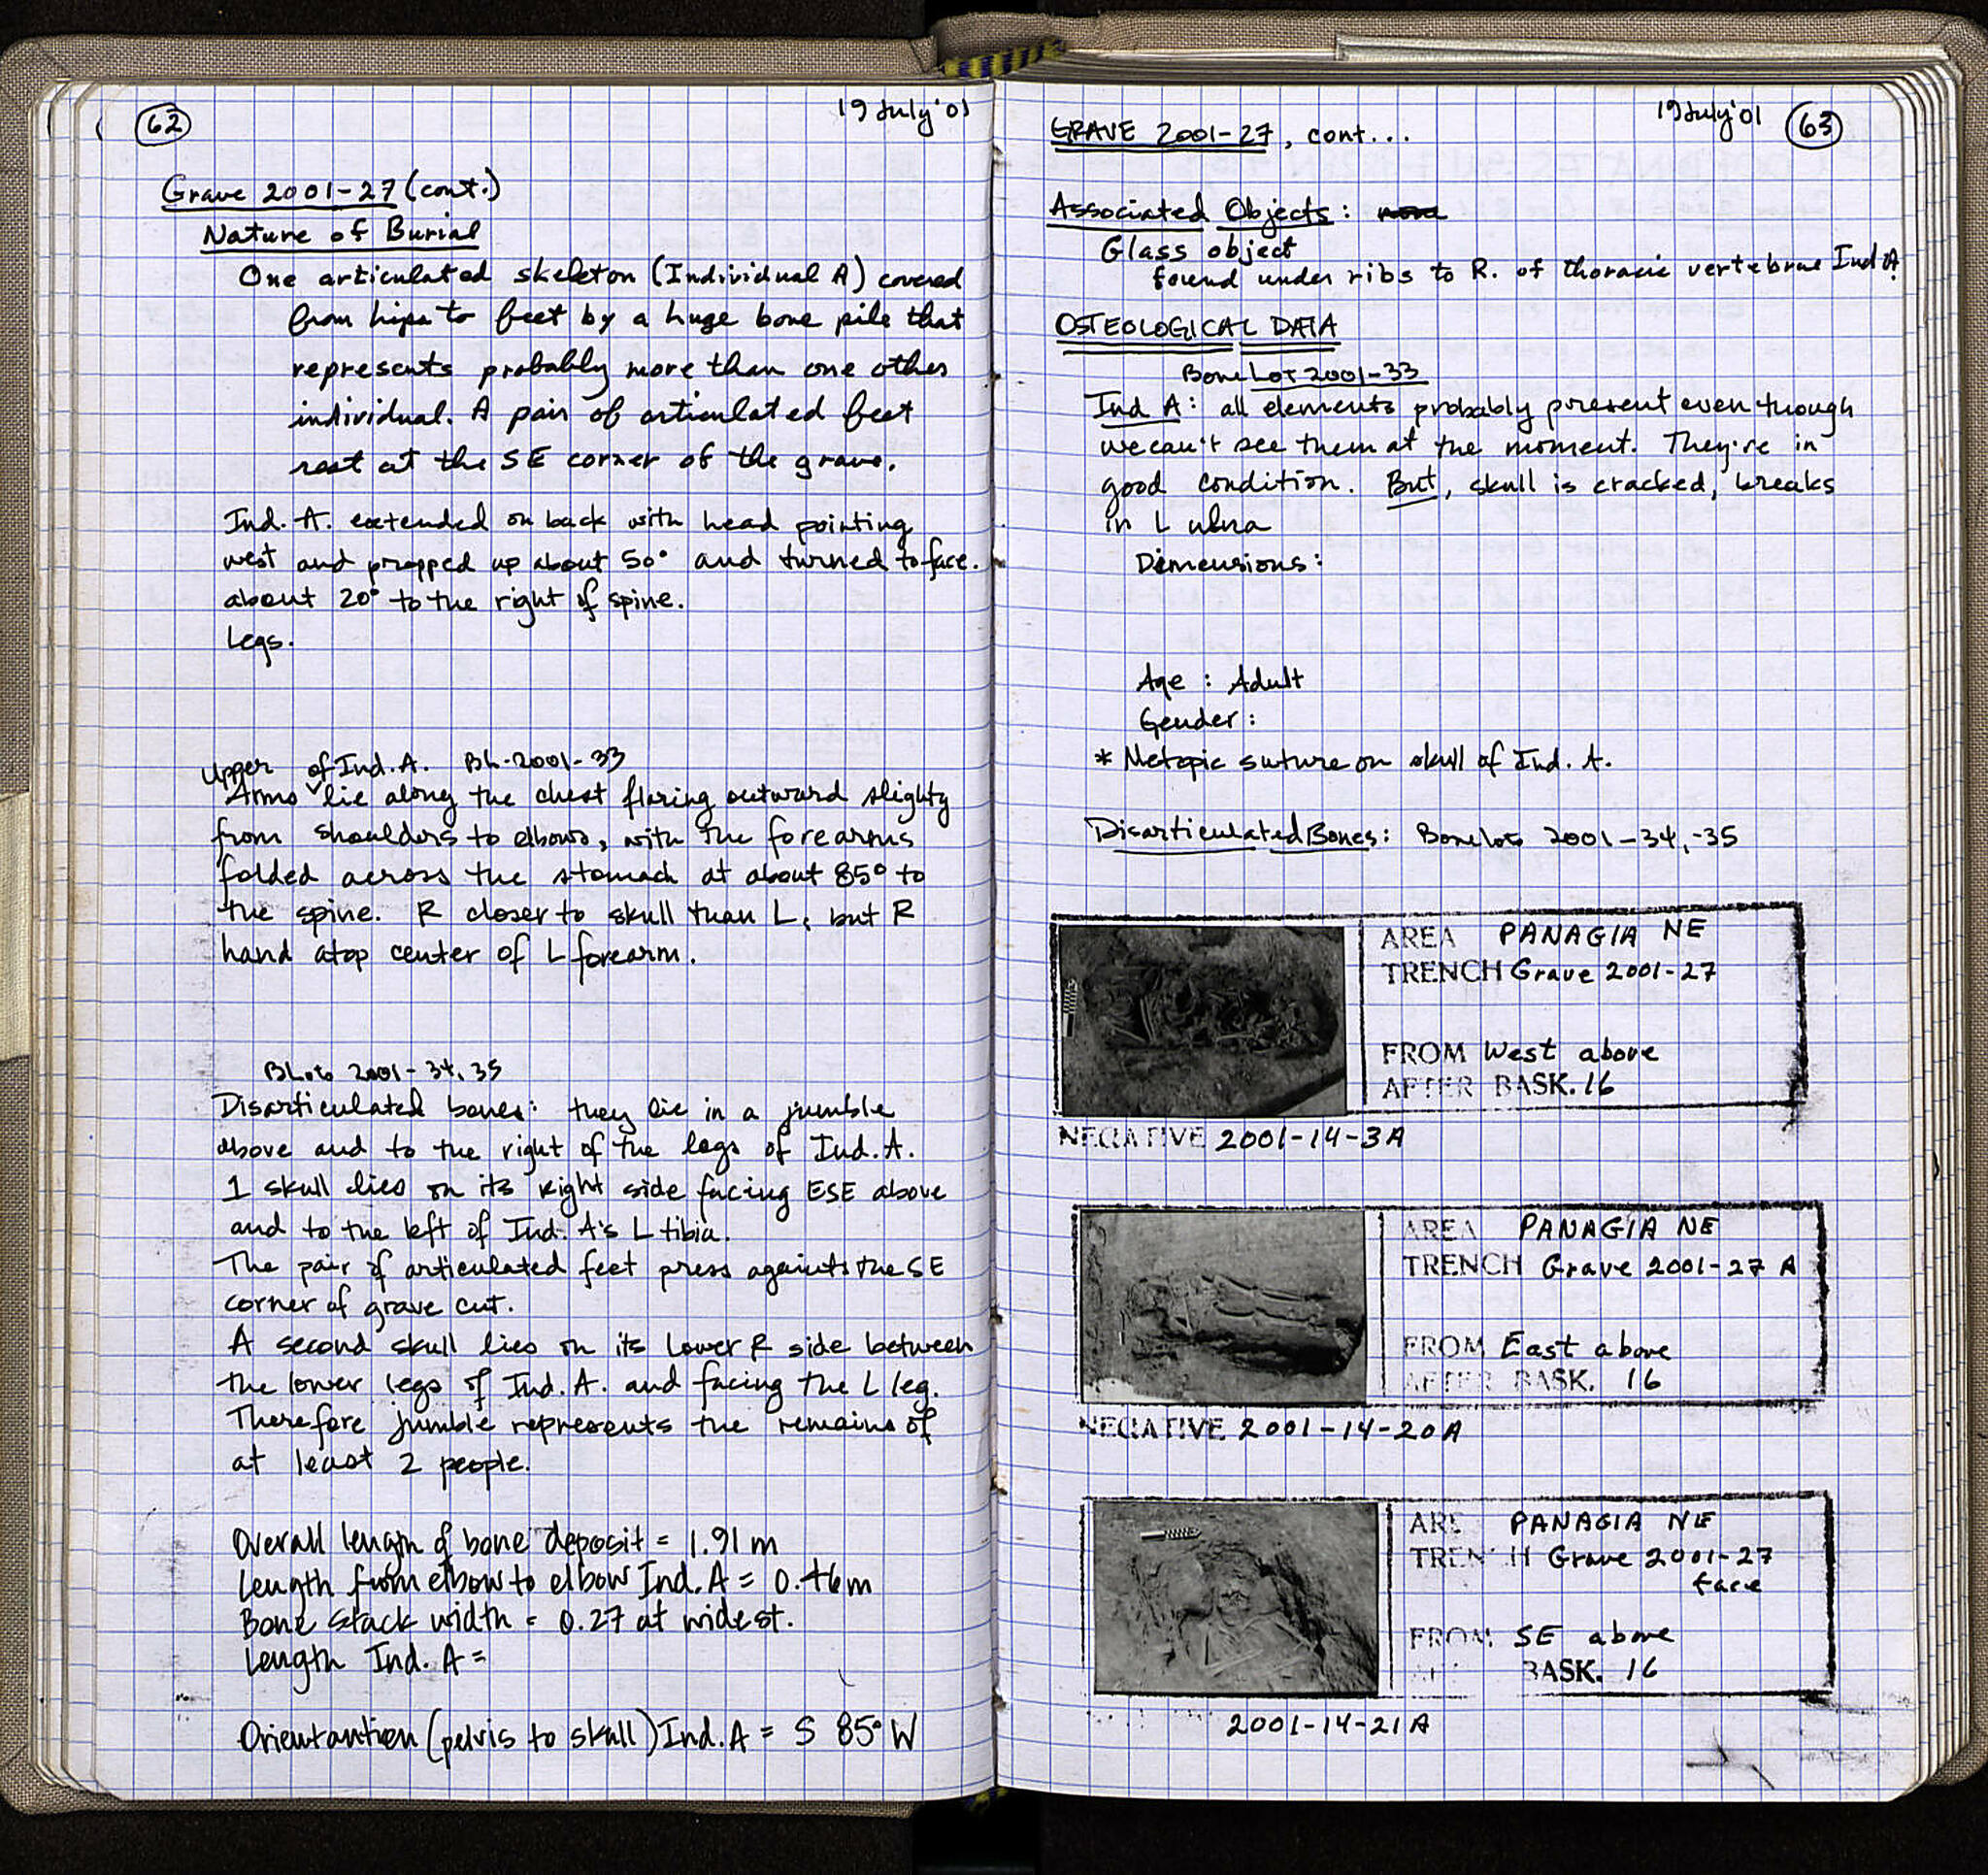 62
19 July '01
Grave 2001-27 (cont.)
Nature of Burial
One articulated skeleton (Individual A) covered
from hips to feet by a huge bone pile that
represents probably more than one other
individual. A pair of articulated feet
rest at the SE corner of the grave.
Ind. A. extended on back with head pointing
west and propped up about 50° and turned to face.
about 20° to the right of spine.
Legs.
of Ind. A. BL. 2001-33
Upper Arms lie along the chest flaring outward slighty
from shoulders to elbows, with the forearms
folded across the stomach at about 85° to
the spine. R closer to skull than L, but R
hand atop center of L forearm.
BLots 2001-34, 35
Disarticulated bones: they lie in a jumble
above and to the right of the legs of Ind. A.
1 skull lies on its right side facing ESE above
and to the left of Ind. A's L tibia.
The pair of articulated feet press against the SE
corner of grave cut.
A second skull lies on its lower R side between
the lower legs of Ind. A. and facing the L leg.
Therefore jumble represents the remains of
at least 2 people.
Overall length of bone deposit = 1.91 m
Length from elbow to elbow Ind. A = 0.46 m
Bone stack width = 0.27 at widest.
Length Ind. A =
Orientantion (pelvis to skull) Ind. A = S 85° W
19 July '01 63
GRAVE 2001-27, cont...
Associated Objects:
Glass object
found under ribs to R. of thoracic vertebrae Ind A
OSTEOLOGICAL DATA
Bone Lot 2001-33
Ind A: all elements probably present even though
we can't see them at the moment. They're in
good condition. But, skull is cracked, breaks
in L ulna
Dimensions:
Age : Adult
Gender:
* Metopic suture on skull of Ind. A.
Disarticulated Bones: Bonelots 2001-34, -35
AREA PANAGIA NE
TRENCH Grave 2001-27
FROM West above
AFTER BASK. 16
NEGATIVE 2001-14-3A
AREA PANAGIA NE
TRENCH Grave 2001-27 A
FROM East above
AFTER BASK. 16
NEGATIVE 2001-14-20A
AREA PANAGIA NE
TRENCH Grave 2001-27
face
FROM SE above
BASK. 16
2001-14-21A